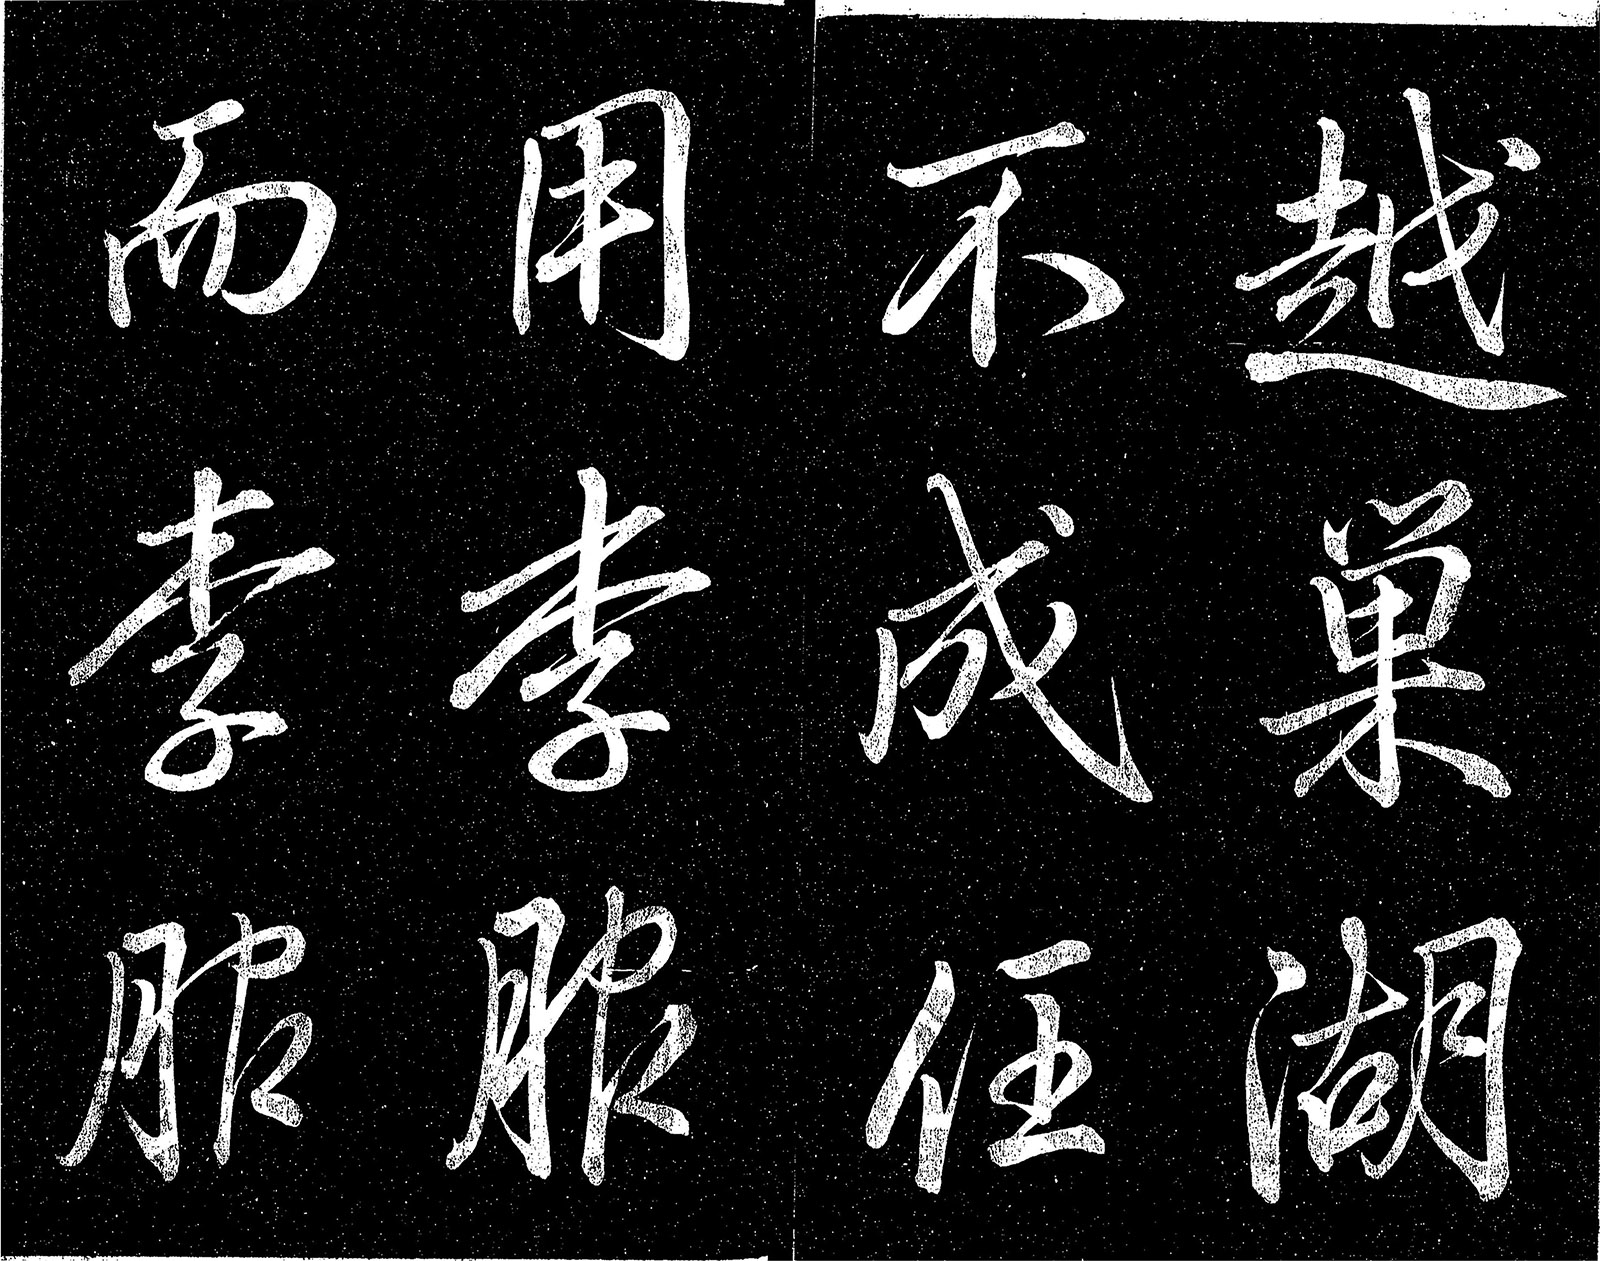 越巢湖
不成任
用李服
而李服